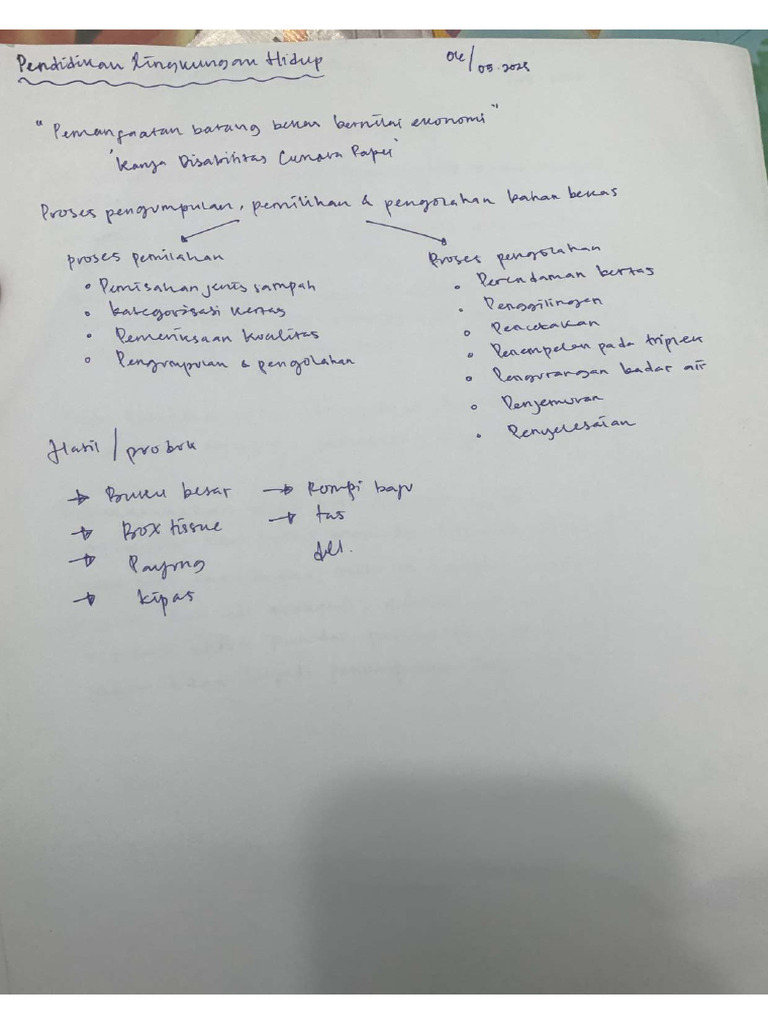 Pendidikan Lingkungan Hidup
06/05.2025
"Pemanfaatan barang bekas bernilai ekonomi"
'Karya Disabilitas
Proses pengumpulan, pemilihan & pengolahan bahan bekas
proses pemilahan
• Pemisahan jenis sampah
• kategorisasi kertas
• Pemeriksaan kualitas
• Pengumpulan & pengolahan
Proses pengolahan
• Perendaman kertas
• Penggilingan
• Pencetakan
• Penempelan pada triplek
• Pengurangan kadar air
• Penjemuran
• Penyelesaian
Hasil / produk
→ Buku besar
→ Box tissue
→ Payung
→ Kipas
→ Rompi baju
→ tas
dll.